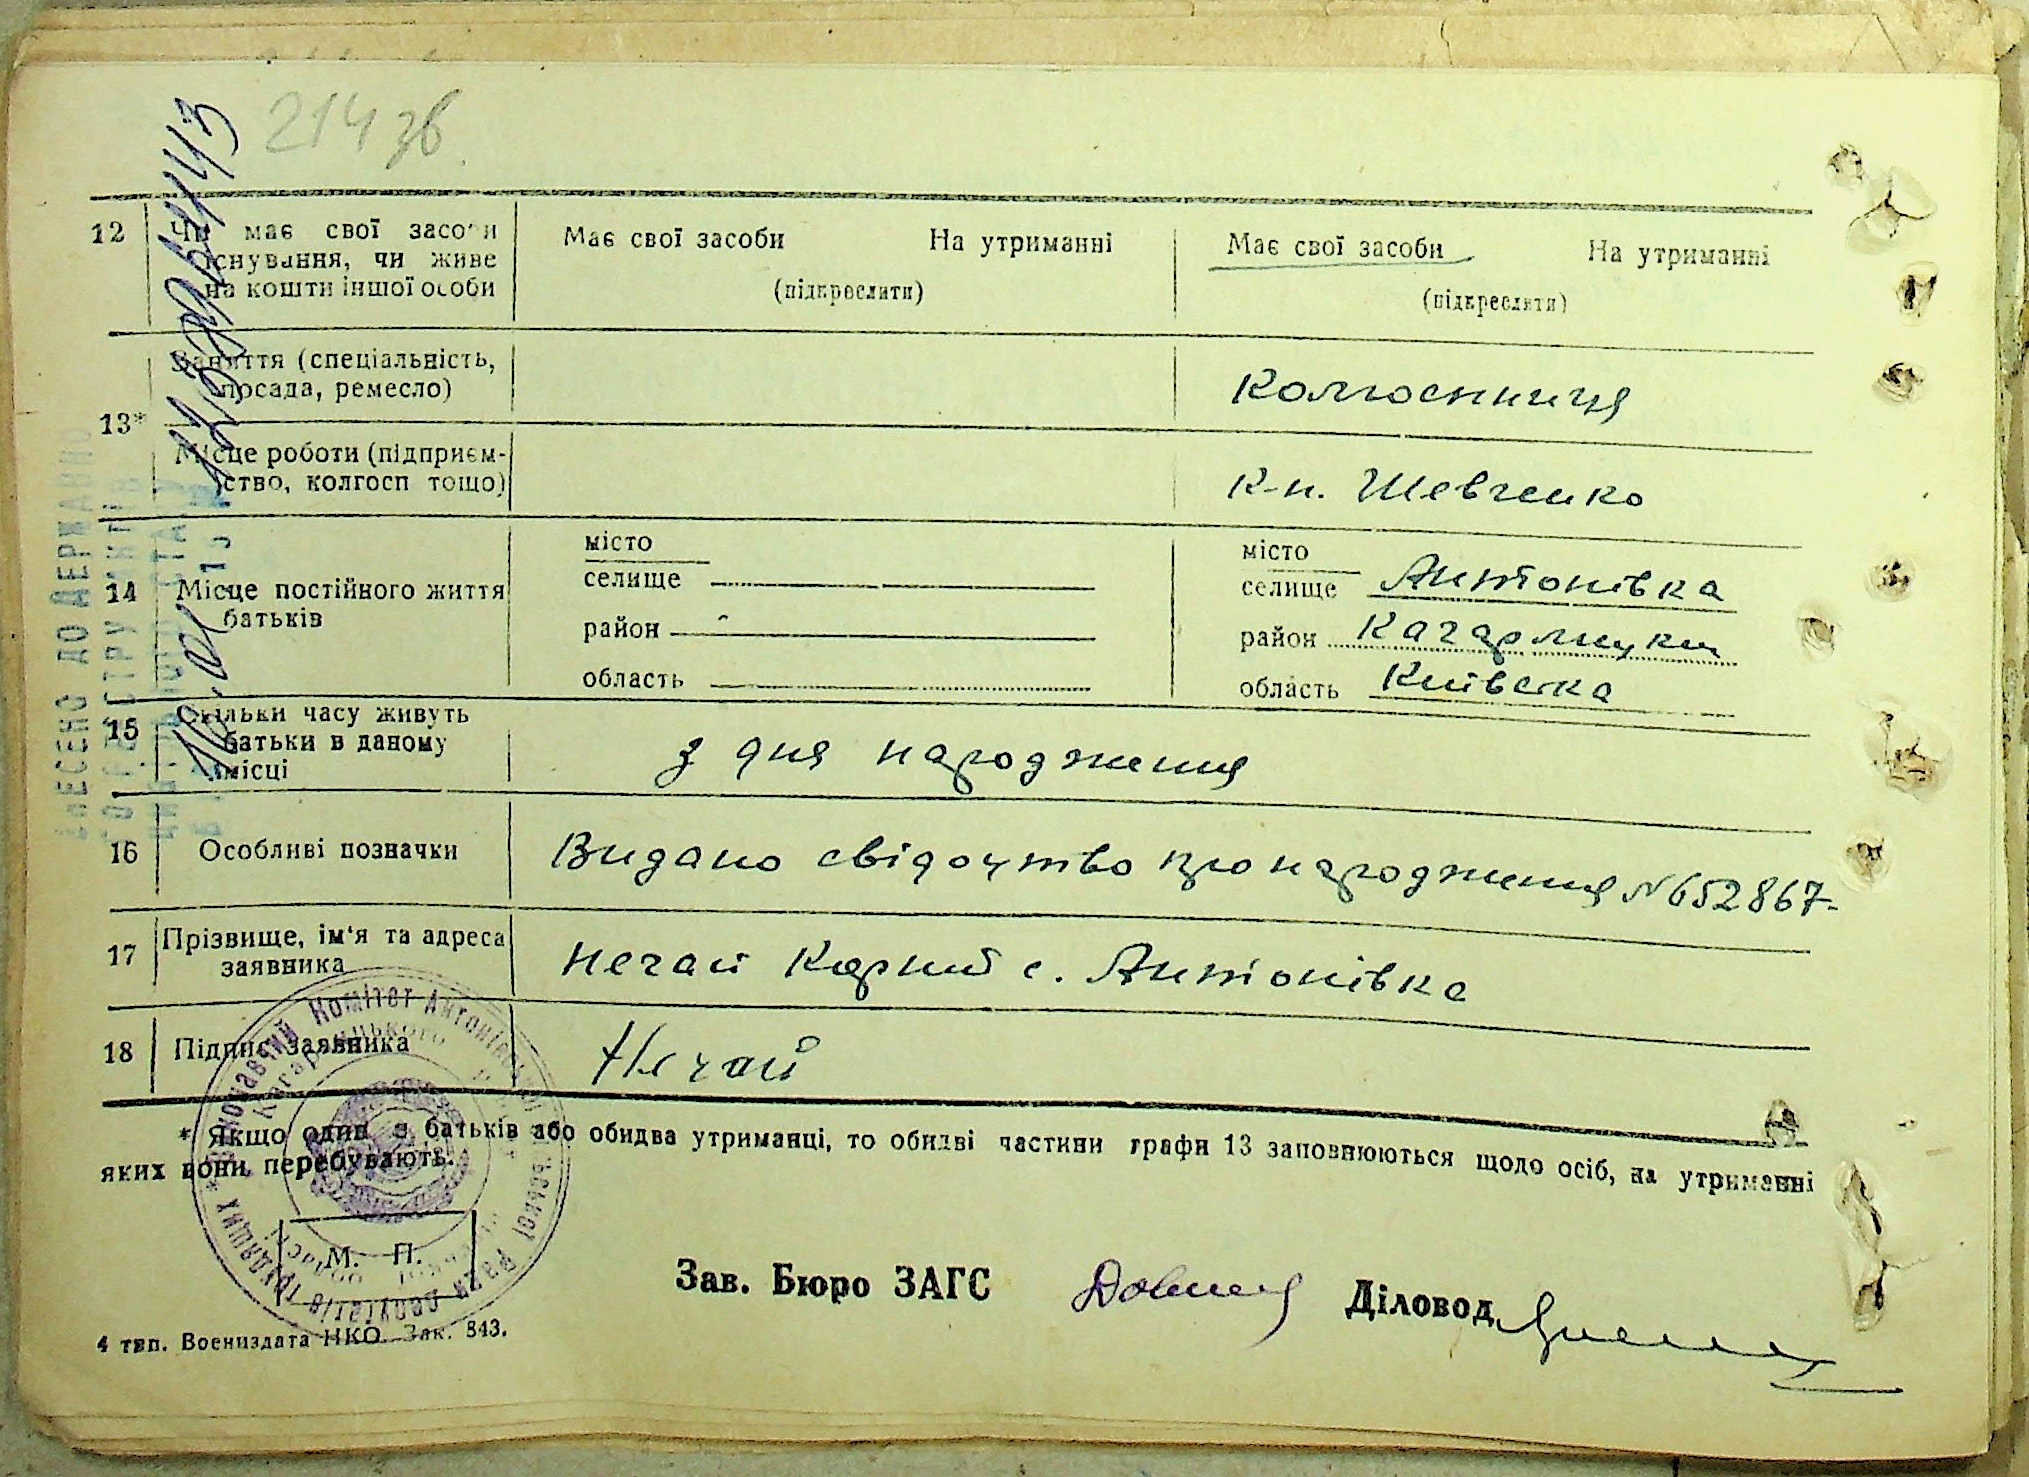 214 зв.
12 Чи має свої засоби Має свої засоби На утриманні Має свої засоби На утриманні
існування, чи живе
на кошти іншої особи (підкреслити) (підкреслити)
Заняття (спеціальність,
посада, ремесло) Колгоспниця
13*
Місце роботи (підприєм-
ство, колгосп тощо) К-п. Шевченко
місто місто
14 Місце постійного життя селище селище Антонівка
батьків район район Кагарлицький
область область Київська
15 Скільки часу живуть
батьки в даному з дня народження
місці
16 Особливі позначки Видано свідоцтво про народження №652867-
17 Прізвище, ім'я та адреса Нечай Корній с. Антонівка
заявника
18 Підпис заявника Нечай
* Якщо один з батьків або обидва утриманці, то обидві частини графи 13 заповнюються щодо осіб, на утриманні
яких вони перебувають.
М. П.
Зав. Бюро ЗАГС Діловод
4 тип. Воениздата НКО. Зак. 843.
ВНЕСЕНО ДО ДЕРЖАВНОГО
РЕЄСТРУ
Виконавчий Комітет Антонівської сільської Ради Депутатів Трудящих *
Кагарлицького